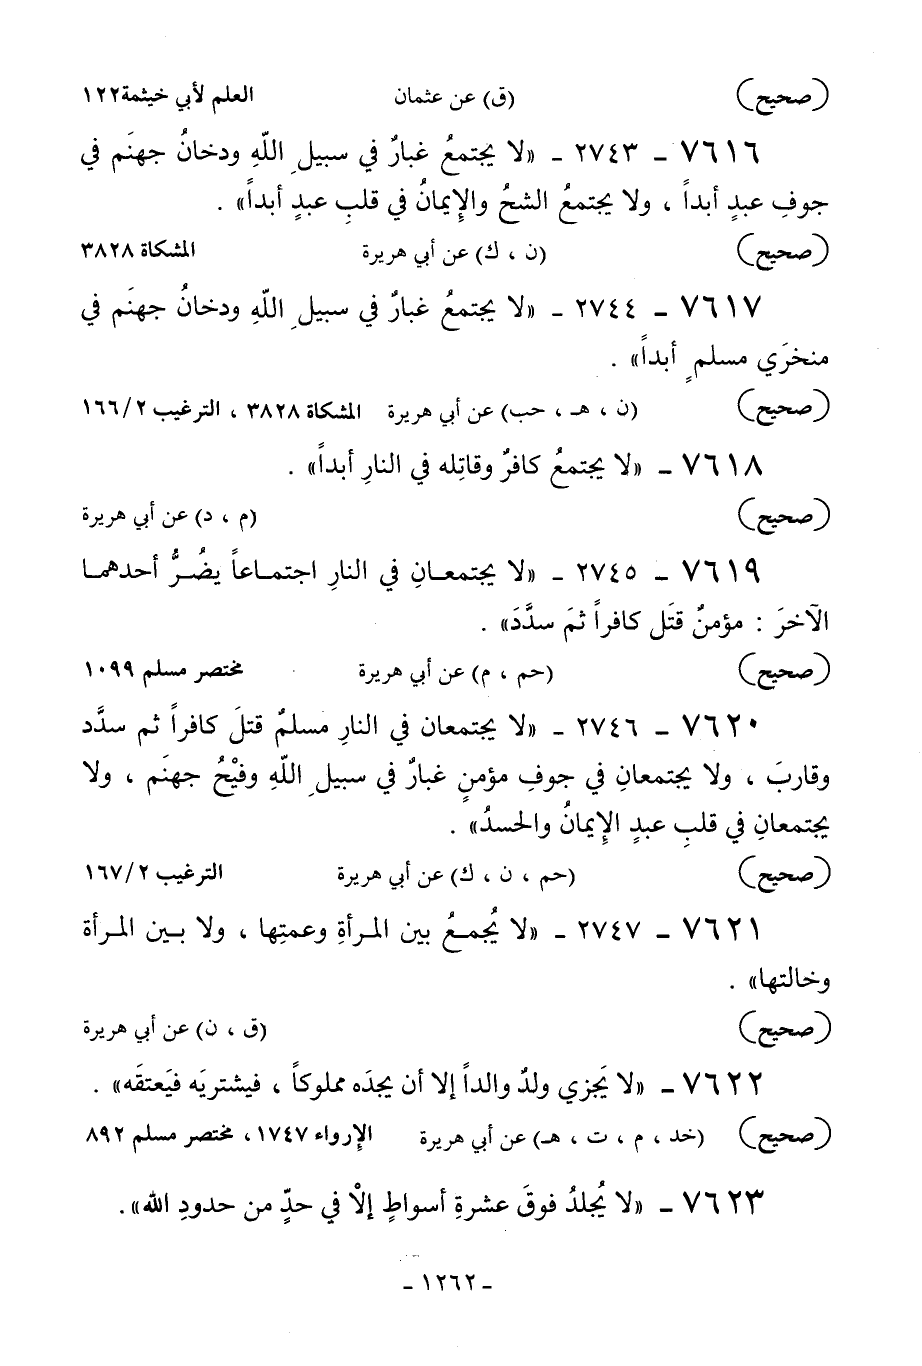 (صحيح) (ق) عن عثمان العلم لأبي خيثمة١٢٢
٧٦١٦ - ٢٧٤٣ - «لا يجتمعُ غبارٌ في سبيلِ اللّهِ ودخانُ جهنَم في
جوفِ عبدٍ أبداً ، ولا يجتمعُ الشحُ والإيمانُ في قلبِ عبدٍ أبداً» .
(صحيح) (ن ، ك) عن أبي هريرة المشكاة ٣٨٢٨
٧٦١٧ - ٢٧٤٤ - «لا يجتمعُ غبارٌ في سبيلِ اللّهِ ودخانُ جهنَم في
منخرَي مسلمٍ أبداً» .
(صحيح) (ن ، هـ ، حب) عن أبي هريرة المشكاة ٣٨٢٨ ، الترغيب ١٦٦/٢
٧٦١٨ - «لا يجتمعُ كافرٌ وقاتِله في النارِ أبداً» .
(صحيح) (م ، د) عن أبي هريرة
٧٦١٩ - ٢٧٤٥ - «لا يجتمعـانِ في النارِ اجتمـاعاً يضُرُّ أحدهمـا
الآخرَ : مؤمنٌ قتَل كافراً ثمَ سدَّدَ» .
(صحيح) (حم ، م) عن أبي هريرة مختصر مسلم ١٠٩٩
٧٦٢٠ - ٢٧٤٦ - «لا يجتمعان في النارِ مسلمٌ قتلَ كافراً ثم سدَّد
وقاربَ ، ولا يجتمعانِ في جوفِ مؤمنٍ غبارٌ في سبيلِ اللّهِ وفيْحُ جهنَم ، ولا
يجتمعانِ في قلبِ عبدٍ الإيمانُ والحسدُ» .
(صحيح) (حم ، ن ، ك) عن أبي هريرة الترغيب ١٦٧/٢
٧٦٢١ - ٢٧٤٧ - «لا يُجمـعُ بين المـرأةِ وعمتِها ، ولا بـين المـرأة
وخالتها» .
(صحيح) (ق ، ن) عن أبي هريرة
٧٦٢٢ - «لا يَجزي ولدٌ والداً إلا أن يجدَه مملوكاً ، فيشتريَه فيَعتقَه» .
(صحيح) (خد ، م ، ت ، هـ) عن أبي هريرة الإرواء ١٧٤٧ ، مختصر مسلم ٨٩٢
٧٦٢٣ - «لا يُجلدُ فوقَ عشرةِ أسواطٍ إلاْ في حدٍّ من حدودِ الله» .
- ١٢٦٢ -